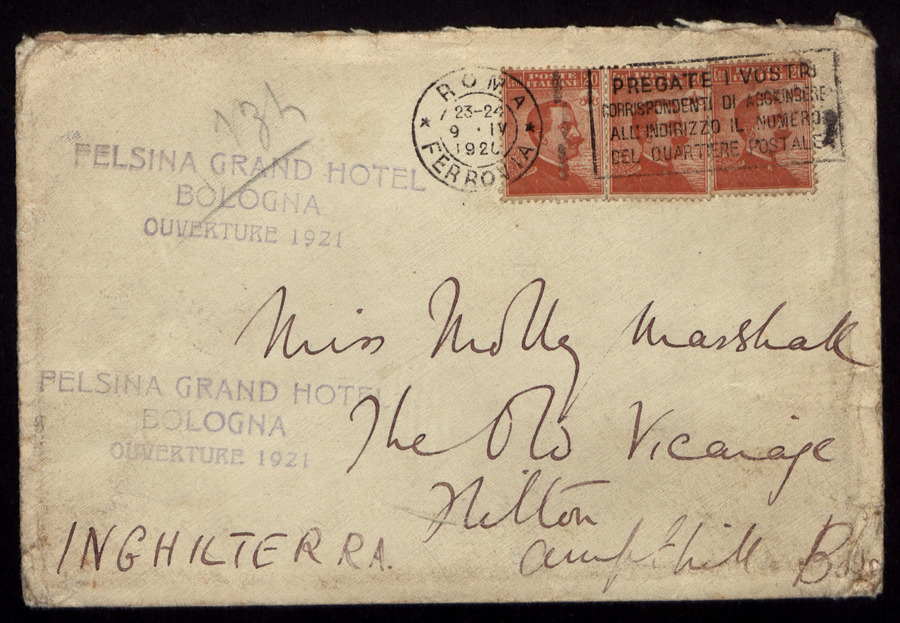 ROMA
23-24
9 · IV
192
FERROVIA
POSTE ITALIANE 20
PREGATE I VOSTRI
CORRISPONDENTI DI AGGIUNGERE
ALL'INDIRIZZO IL NUMERO
DEL QUARTIERE POSTALE
FELSINA GRAND HOTEL
BOLOGNA
OUVERTURE 1921
Miss Molly Marshall
FELSINA GRAND HOTEL
BOLOGNA
OUVERTURE 1921
The Old Vicarage
Ampthill
INGHILTERRA.